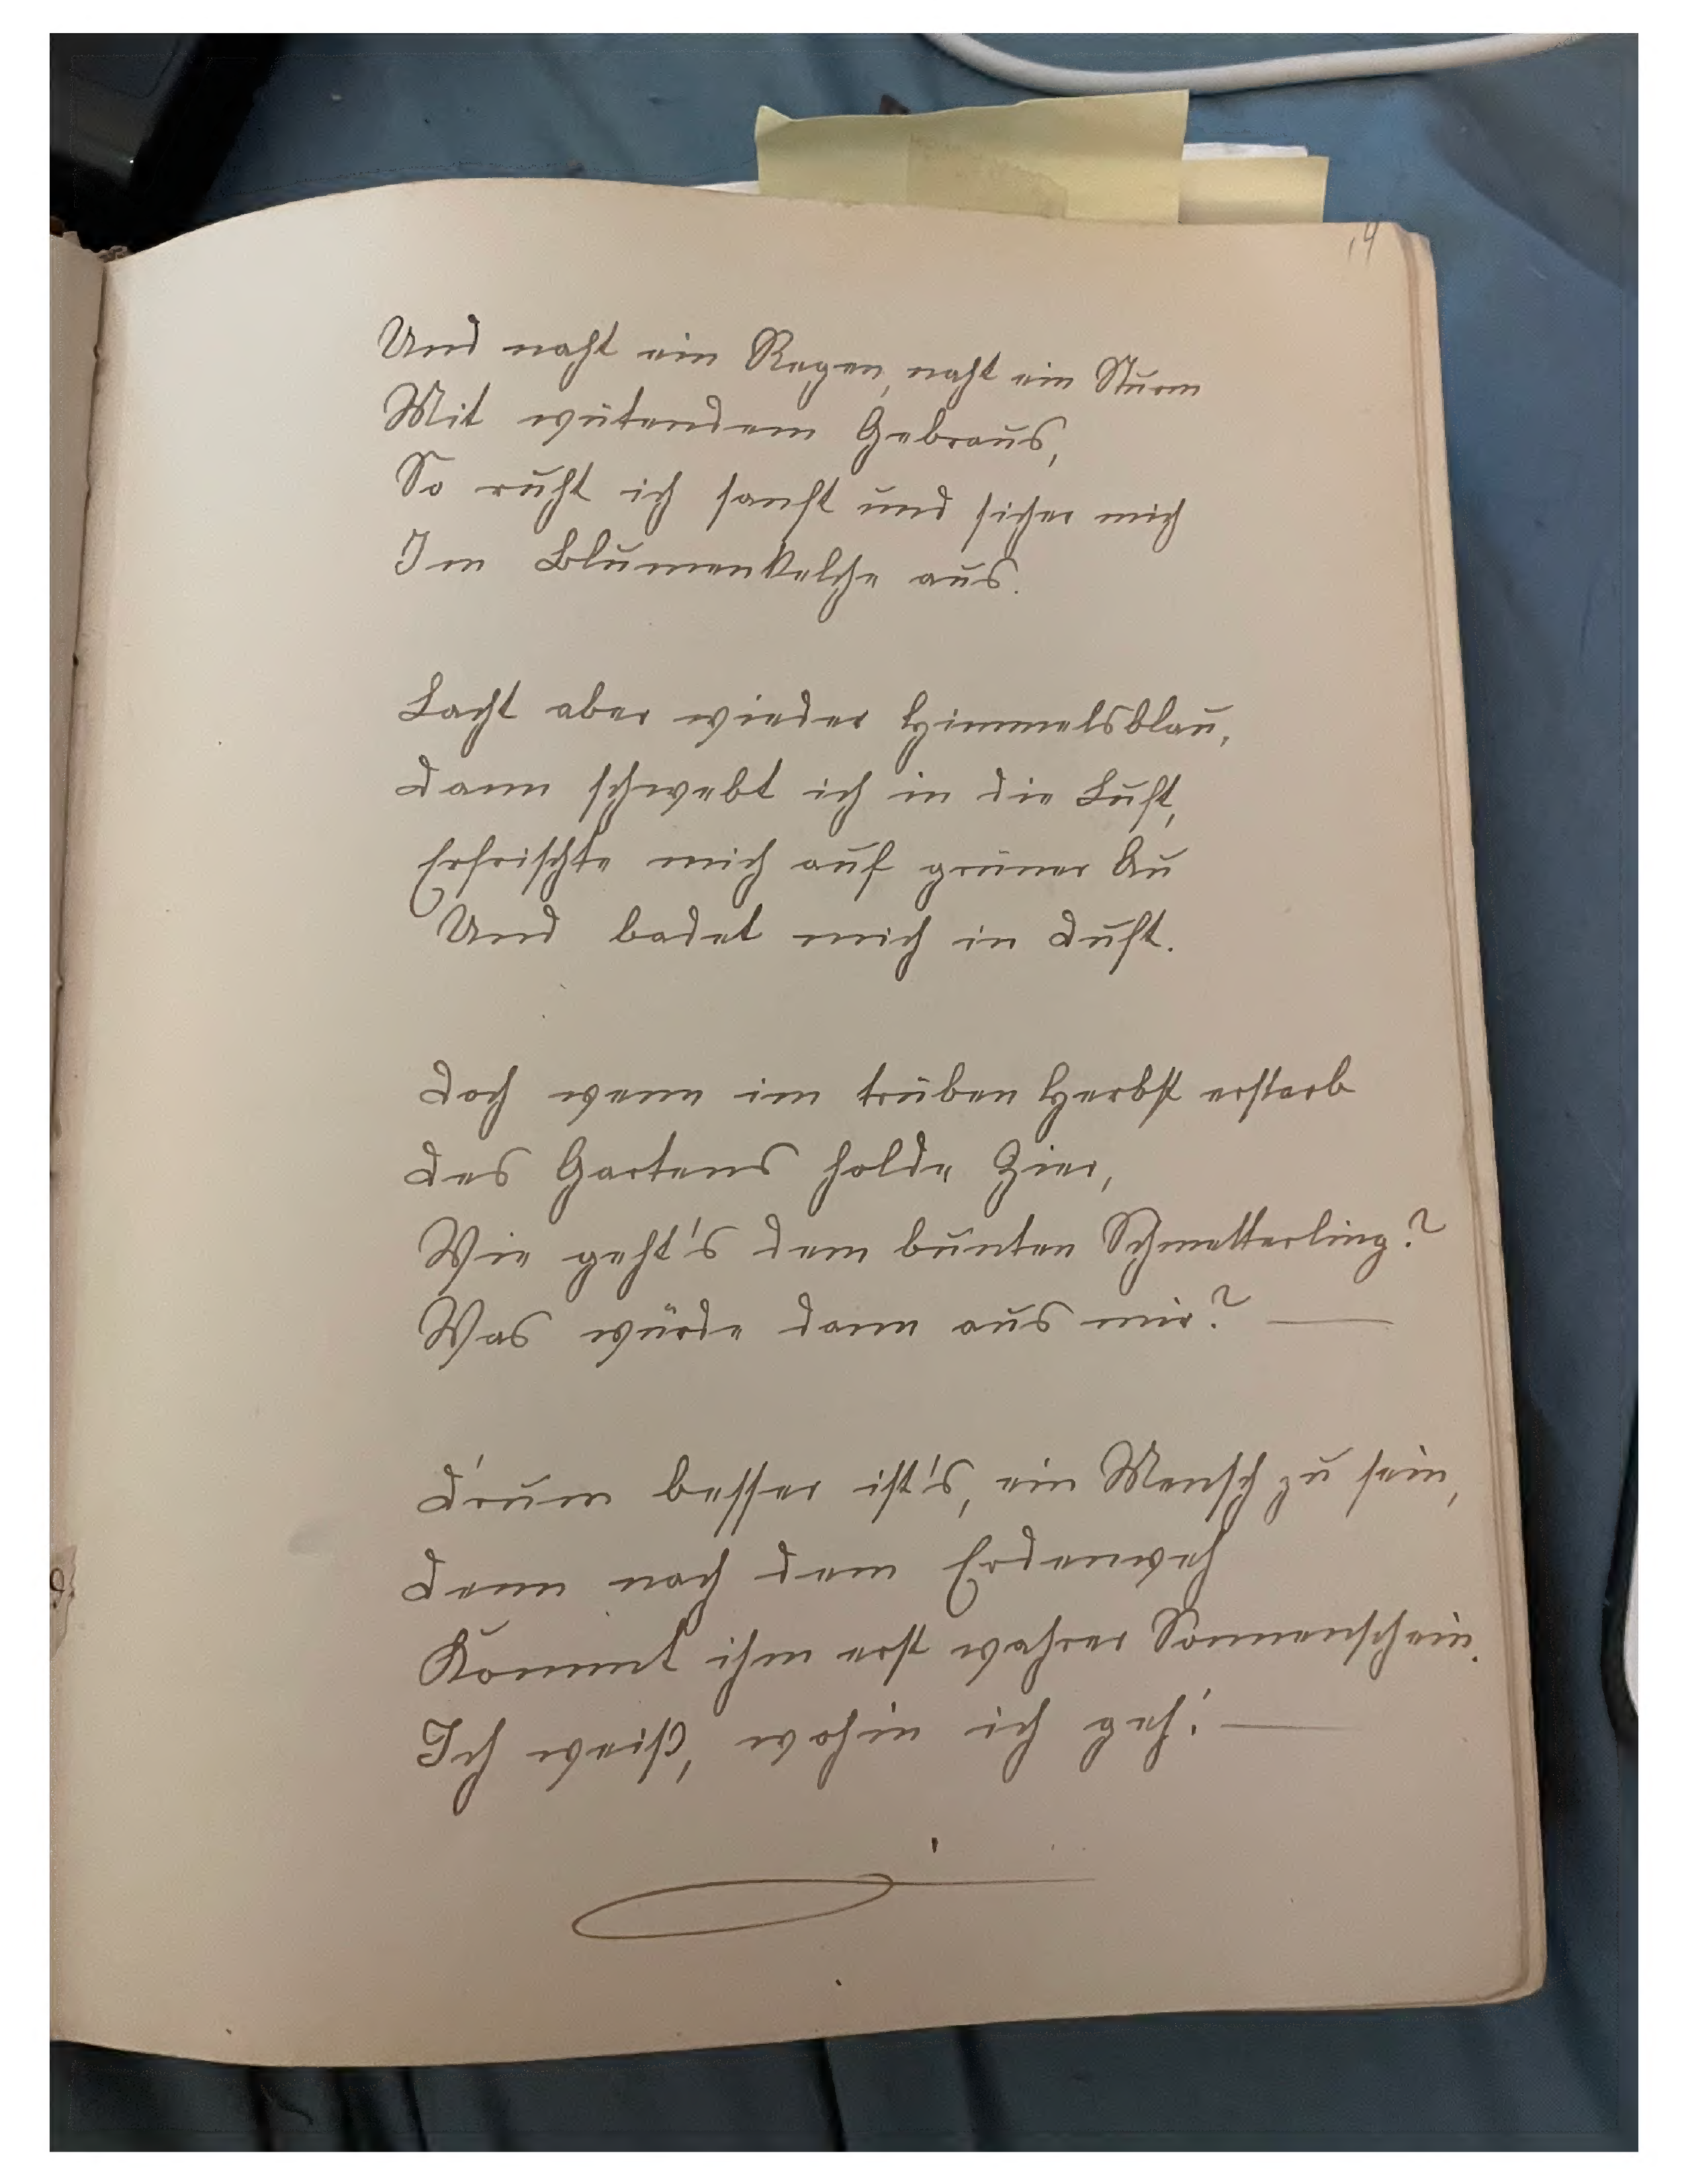 14
Und naht ein Regen, naht ein Sturm
Mit wütendem Gebraus,
So ruht ich sanft und sicher mich
Im Blumenkelche aus.
Lacht aber wieder Himmelsblau,
Dann schwebt ich in die Luft,
Erfrischte mich auf grüner Au
Und badet mich in Duft.
Doch wenn im trüben Herbst erstarb
Des Gartens holde Zier,
Wie geht's dem bunten Schmetterling?
Was würde dann aus mir? —
D'rum besser ist's, ein Mensch zu sein,
Denn nach dem Erdenweh
Kommt ihm erst wahrer Sonnenschein.
Ich weiß, wohin ich geh! —